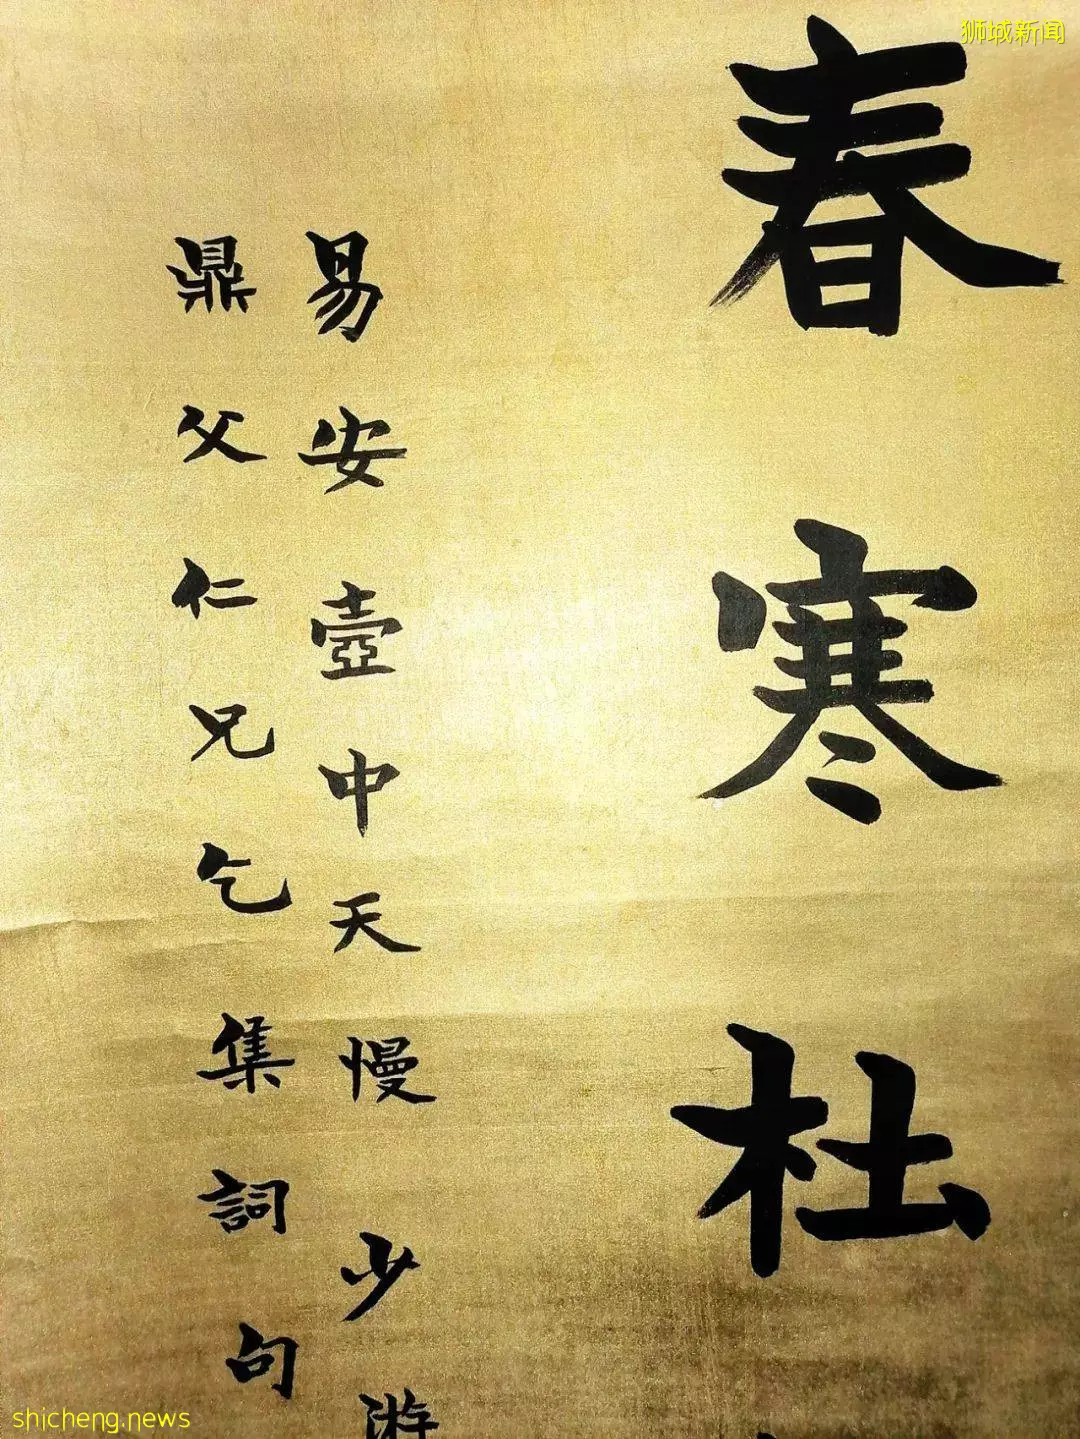 狮城新闻
春寒杜
易安壺中天慢少游
鼎父仁兄乞集詞句
shicheng.news